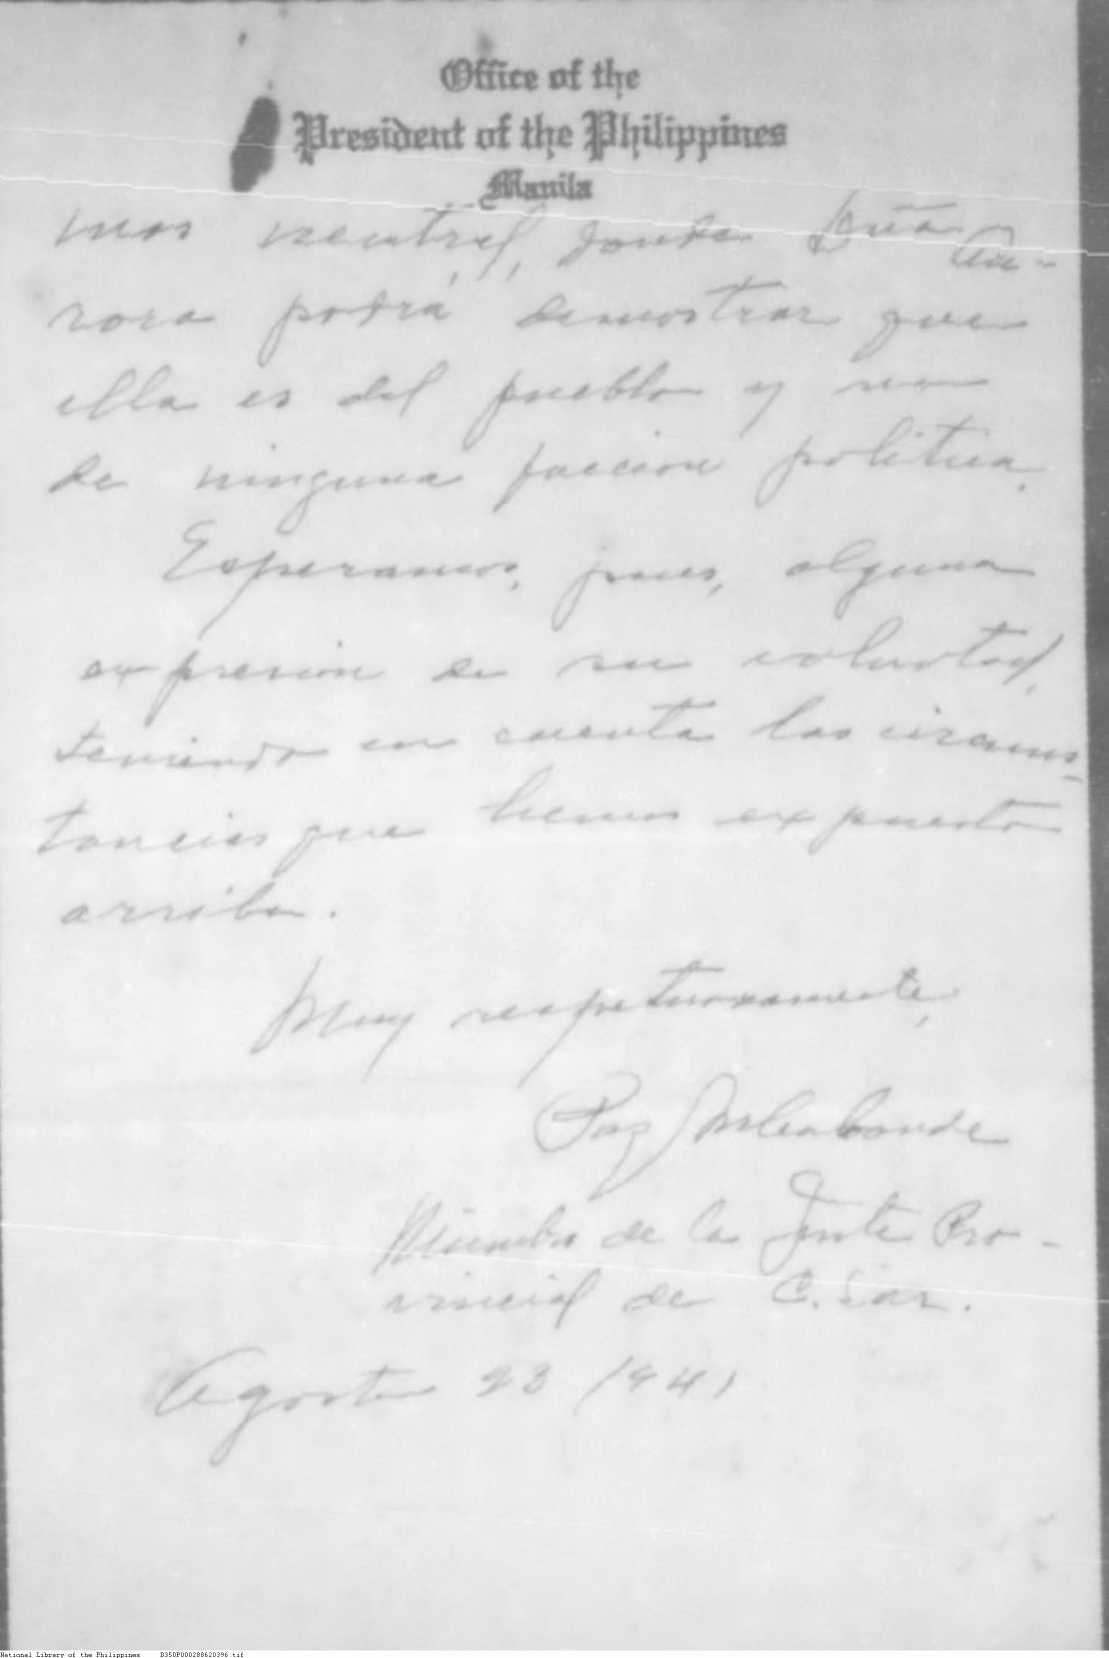 Office of the
President of the Philippines
Manila
mas neutral, donde Dña Au-
rora podrá demostrar que
ella es del pueblo y no
de ninguna faccion politica.
Esperamos, pues, alguna
expresion de su voluntad,
teniendo en cuenta las circuns-
tancias que hemos expuesto
arriba.
Muy respetuosamente,
Paz
Miembro de la Junta Pro-
vincial de C. Sur.
Agosto 23 1941
National Library of the Philippines D350P000288620396.tif